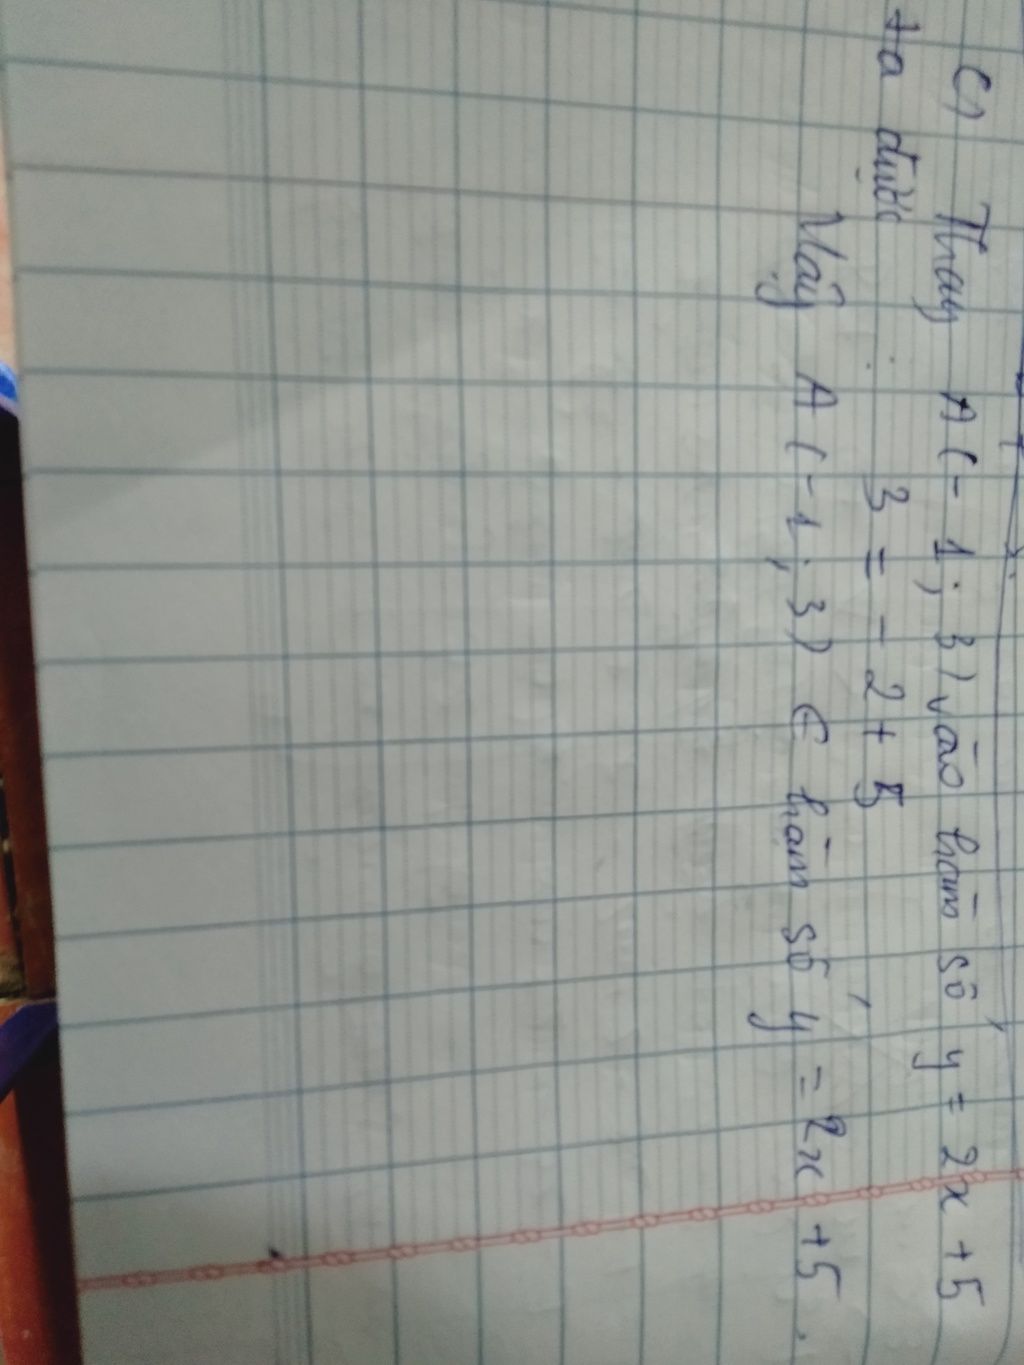 c) Thay A(-1; 3) vào hàm số y = 2x + 5
ta được : 3 = -2 + 5
Vậy A(-1; 3) ∈ hàm số y = 2x + 5.